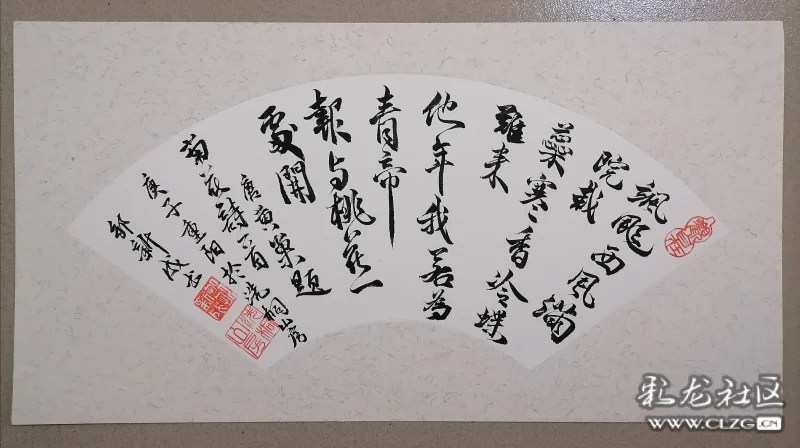 颯颯西风滿
院栽
蘂寒香冷蝶
難来
他年我若為
青帝
報与桃花一
處開
唐黄巢題
菊花詩一首於洗桐山房
庚子重阳
郭新成书
彩龙社区
WWW.CLZG.CN